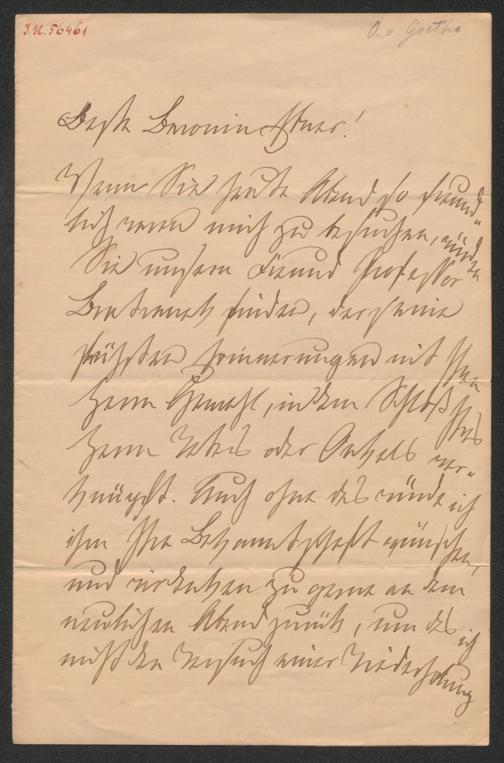 I.N. 56461
O. v. Goethe
Beste Baronin Ebner!
Wenn Sie heute Abend so freund-
lich wären mich zu besuchen, würden
Sie unsern Freund Professor
Bratranek finden, der seine
frühsten Erinnerungen mit Ihrem
Herrn Gemahl, in dem Schloß Ihres
Herrn Vaters oder Onkels ver-
knüpft. Auch ohne das würde ich
ihm Ihre Bekanntschaft wünschen,
und wir denken zu gerne an den
neulichen Abend zurück, um das ich
nicht den Versuch einer Wiederholung